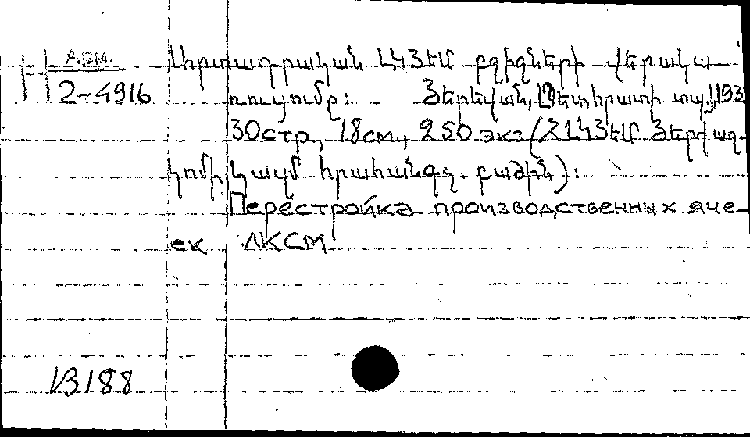 Арм.
2-4916
Արտադրական ԼԿՅԵՄ բջիջների վերակա-
ռուցումը: Յերեվան, Պետհրատի տպ., 193
30стр, 18см, 250 экз (ՀԼԿՅԵՄ Յերքաղ-
կոմի կազմ. հրահանգչ. բաժին):
Перестройка производственных яче-
ек ЛКСМ
13188